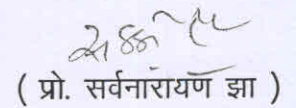 ( प्रो. सर्वनारायण झा )